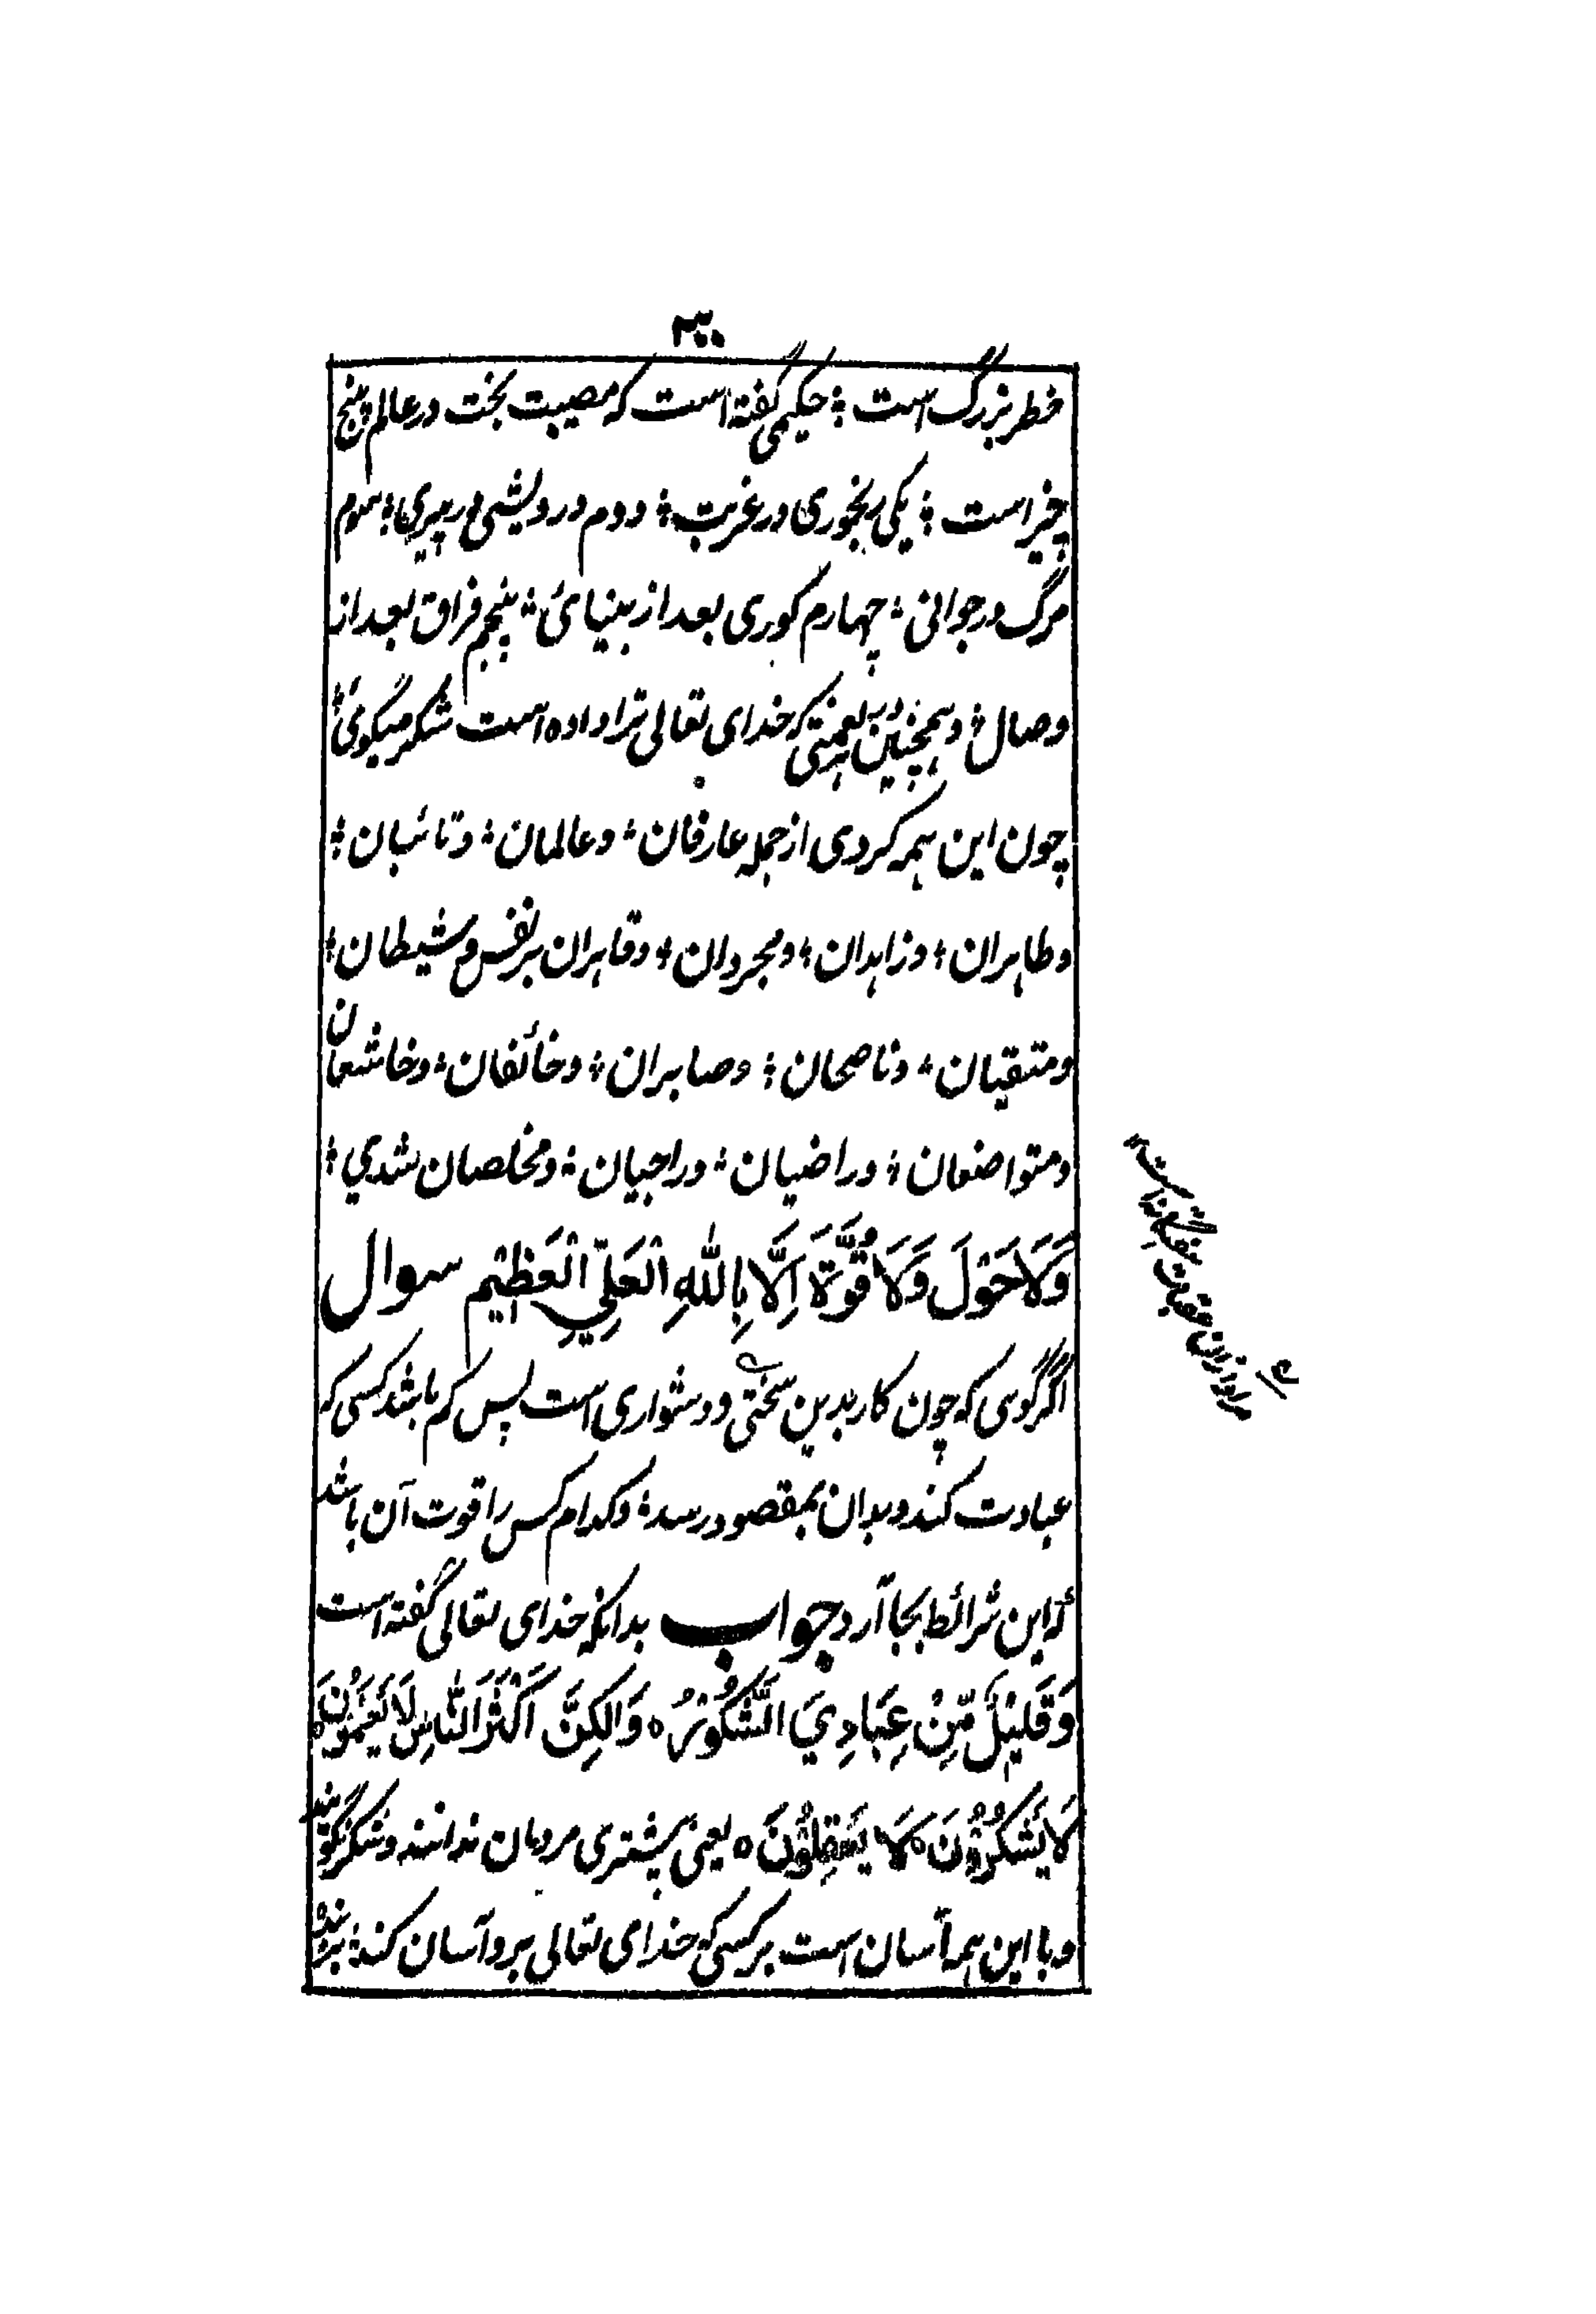 ۳۰۰
خطر بزرگ است ؛ حکیمی گفته است که مصیبت بخت در عالم پنج
چیز است ؛ یکی رنجوری در غربت ؛ دوم درویشی در پیری ؛ سوم
مرگ در جوانی ؛ چهارم کوری بعد از بینائی ؛ پنجم فراق بعد از
وصال ؛ و همچنین بر نعمتی که خدای تعالی ترا داده است شکر میگوئی ؛
چون این همه کردی از جمله عارفان ؛ و عالمان ؛ و تائبان ؛
و طاهران ؛ و زاهدان ؛ و مجردان ؛ و قاهران بر نفس و شیطان ؛
و متقیان ؛ و ناصحان ؛ و صابران ؛ و خائفان ؛ و خاشعان
و متواضعان ؛ و راضیان ؛ و راجیان ؛ و مخلصان شدي ؛
وَلَا حَوْلَ وَلَا قُوَّةَ اِلَّا بِاللّٰهِ الْعَلِيِّ الْعَظِيْمِ سوال
اگر گوی که چون کار بدین سختی و دشواری است پس کم باشد کسی که
عبادت کند و بدان بمقصود رسد ؛ و کدام کس را قوت آن باشد
که این شرائط بجا آرد جواب بدانکه خدای تعالی گفته است
وَقَلِيْلٌ مِّنْ عِبَادِيَ الشَّكُوْرُ ه وَالٰكِنَّ اَكْثَرَ النَّاسِ لَا يَعْلَمُوْنَ ه
لَا يَشْكُرُوْنَ ه لَا يَعْقِلُوْنَ ه یعنی بیشتری مردمان ندانند و شکر نگویند
و با این همه آسان است بر کسی که خدای تعالی برو آسان کند ؛